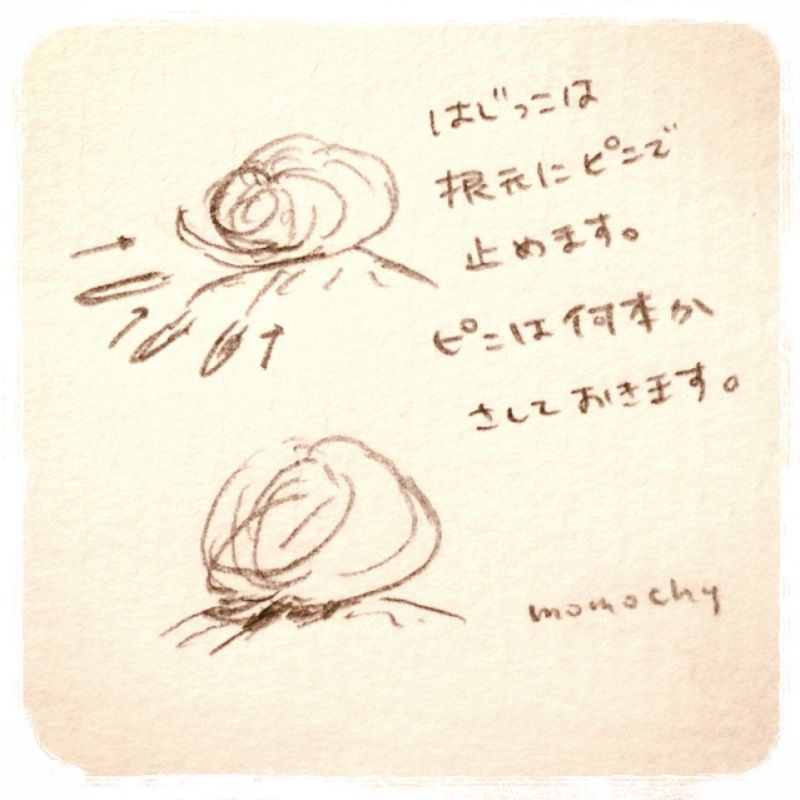 はじっこは
根元にピンで
止めます。
ピンは何本か
さしておきます。
momochy